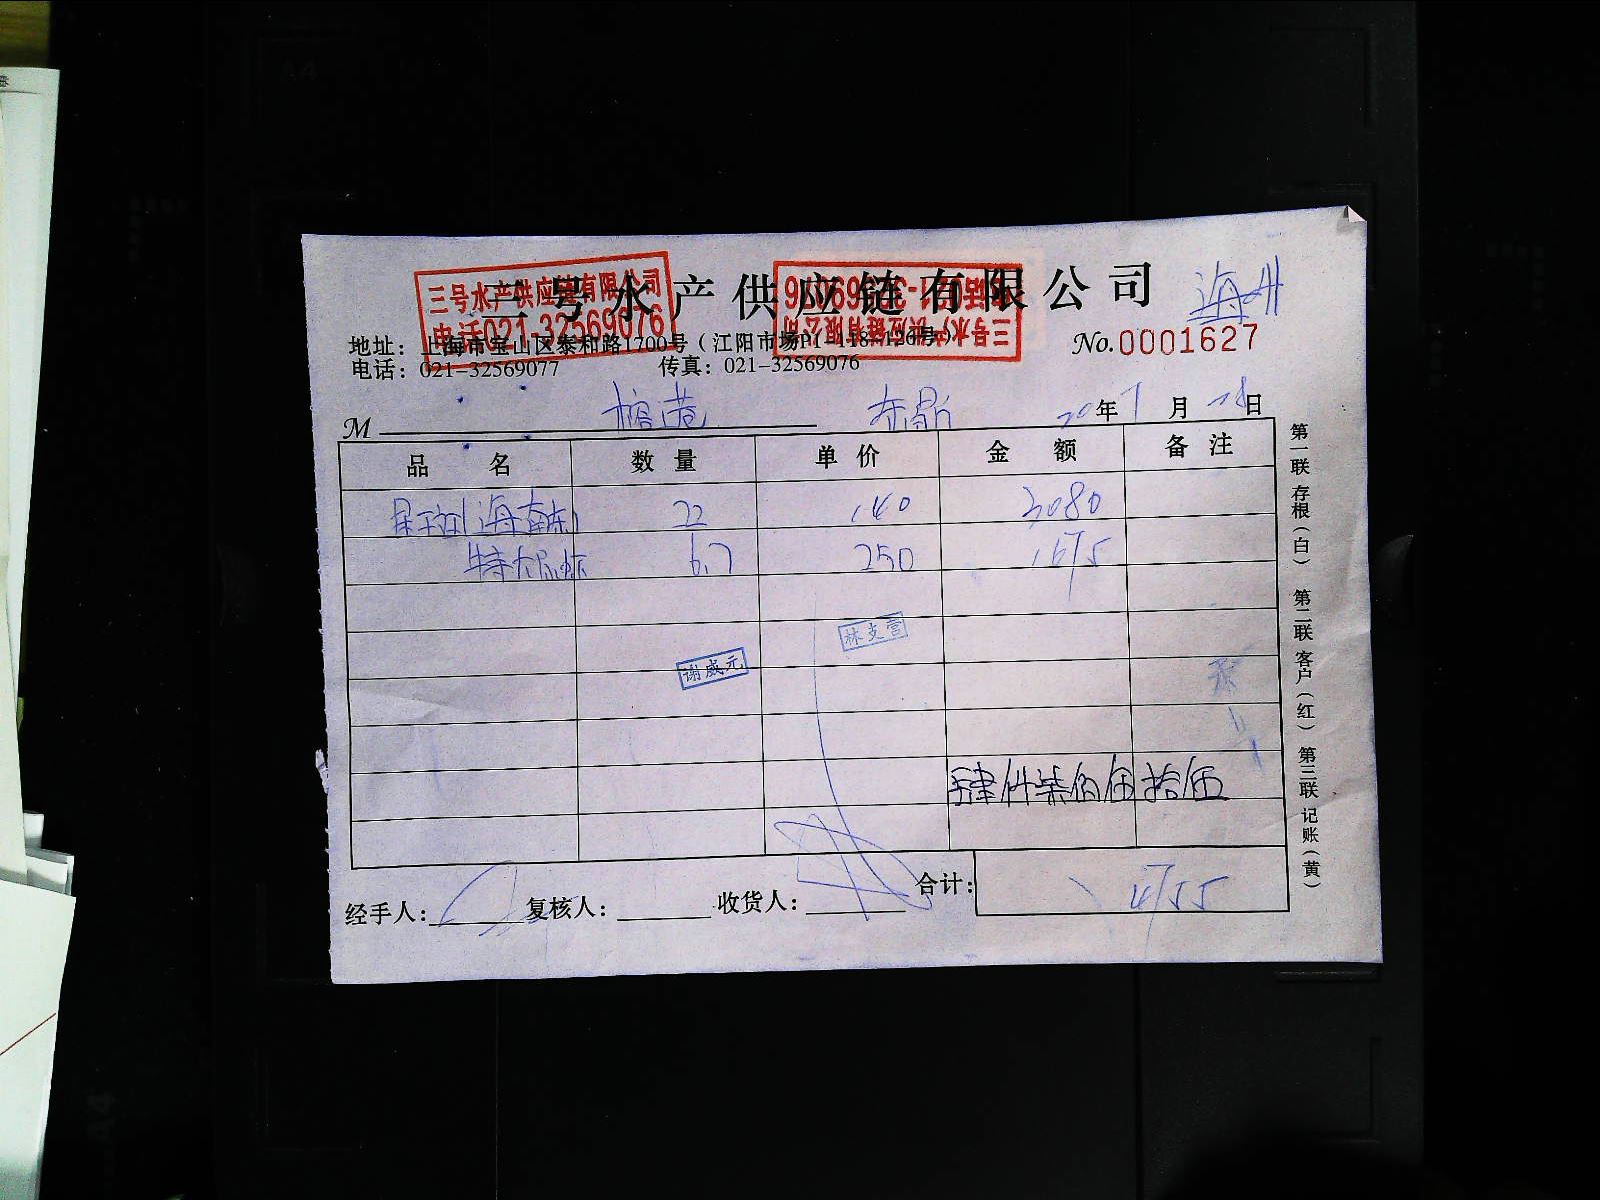 三号水产供应链有限公司
三号水产供应链有限公司
电话021-32569076
三号水产供应链有限公司
地址：上海市宝山区泰和路1700号（江阳市场P1-118-126号）
No.0001627
电话：021-32569077 传真：021-32569076
M 榕港 20年7月28日
品名 数量 单价 金额 备注
22 140 3080
特大 6.7 250 1675
林支营
谢威元
肆仟柒佰伍拾伍
合计： 4755
经手人： 复核人： 收货人：
第一联 存根（白） 第二联 客户（红） 第三联 记账（黄）